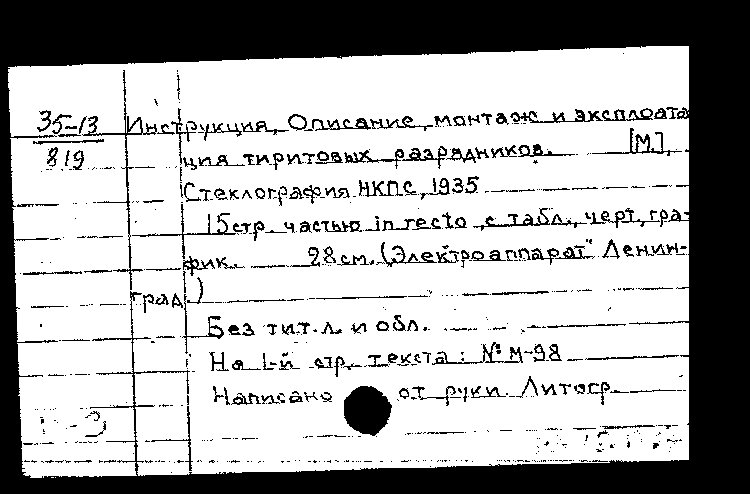 35-13
819
Инструкция, Описание, монтаж и эксплоата
ция тиритовых разрядников. [М.],
Стеклография НКПС, 1935
15 стр. частью in recto, с табл., черт, гра-
фик. 28 см. („Электроаппарат" Ленин-
град.)
Без тит. л. и обл.
На 1-й стр. текста: № М-98
Написано от руки. Литогр.